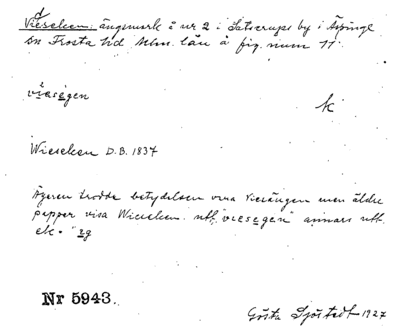 d
Vieseken: ängsmark å nr 2 i Satserups by i Äspinge
sn Frosta hd Mlm. län å fig. num 11
viesegen
k
Wieseken D.B. 1837
Ägaren trodde betydelsen vara Viesängen men äldre
papper visa Wieseken. utt. "viesegen" annars utt.
ek. - eg
Nr 5943.
Gösta Sjöstedt 1927